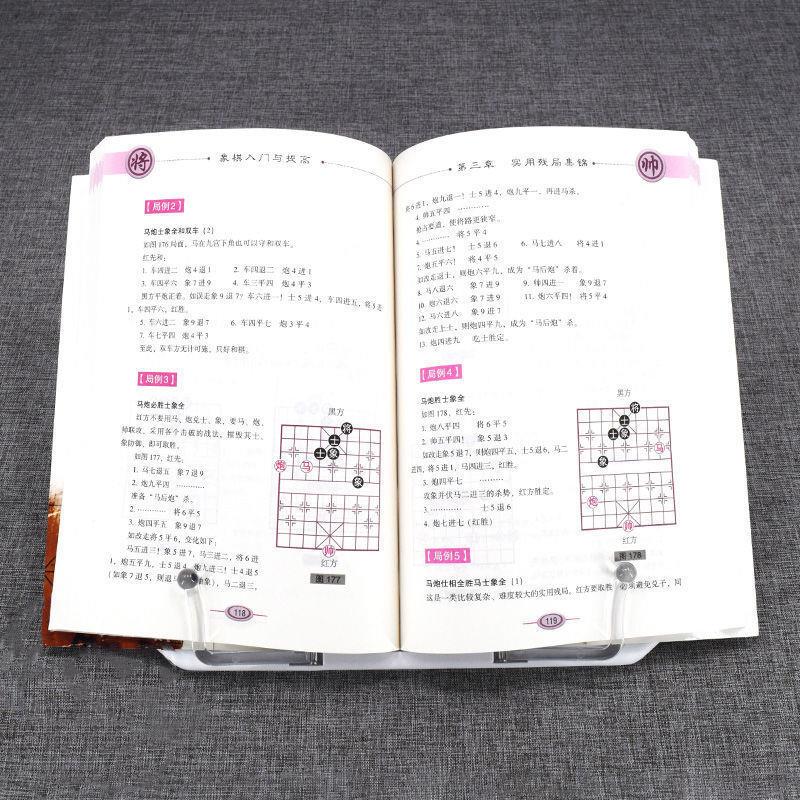 将
象棋入门与提高
【局例2】
马炮士象全和双车（2）
如图176局面，马在九宫下角也可以守和双车。
红先和：
1. 车四进二 炮4退1 2. 车四退二 炮4进1
3. 车四平六 象7进9 4. 车三平四 炮4平3
黑方平炮正着。如误走象9退7？车六进一！士5进4，车四进五，将5进
1，车四平六，红胜。
5. 车六进二 象9退7 6. 车四平七 炮3平4
7. 车七平四 炮4平3
至此，双车方无计可施，只好和棋。
【局例3】
马炮必胜士象全
红方不要用马、炮兑士、象，要马、炮、
帅联攻，采用各个击破的战法，摧毁其士、
象防御，即可取胜。
如图177，红先：
1. 马七退五 象7退9
2. 炮九平四 …………
准备“马后炮”杀。
2. ………… 将6平5
3. 炮四平五 象9退7
如改走将5平6，变化如下：
马五进三！象5进7，马三进二，将6进
1，炮五平九，士5进4，炮九进三！象7退5
（如象7退5，则退马 抽象），马二退三，
黑方
将
士
士
象
炮
马
象
帅
红方
图177
118
第三章 实用残局集锦
帅
将6进1，炮九退一！士5进4，炮九平一，再进马杀。
4. 帅五平四 …………
抢占要道，使将路更狭窄。
4. ………… 将5平4
5. 马五进七！ 士5退6 6. 马七进八 将4进1
7. 炮五平六！ 士6进5
如改走退士，则炮六平九，成为“马后炮”杀着。
8. 马八退六 象7进9 9. 帅四进一 象9退7
10. 炮六退六 象7进9 11. 炮六平四！ 将4平5
12. 马六进八！ 象9退7
如改走上士，则炮四平九，成为“马后炮”杀。
13. 炮四进九 吃士胜定。
【局例4】
马炮胜士象全
如图178，红先：
1. 炮八平四 将6平5
2. 帅五平四！ 象5退3
如改走象5退7，则炮四平五，士5退6，马二
退四，将5进1，马四进三，红胜。
3. 炮四平七 …………
攻象并伏马二进三的杀势，红方胜定。
3. ………… 士5退6
4. 炮七进七（红胜）
黑方
将
士
士
象
马
象
炮
帅
红方
图178
【局例5】
马炮仕相全胜马士象全（1）
这是一类比较复杂、难度较大的实用残局。红方要取胜，必须避免兑子，同
119